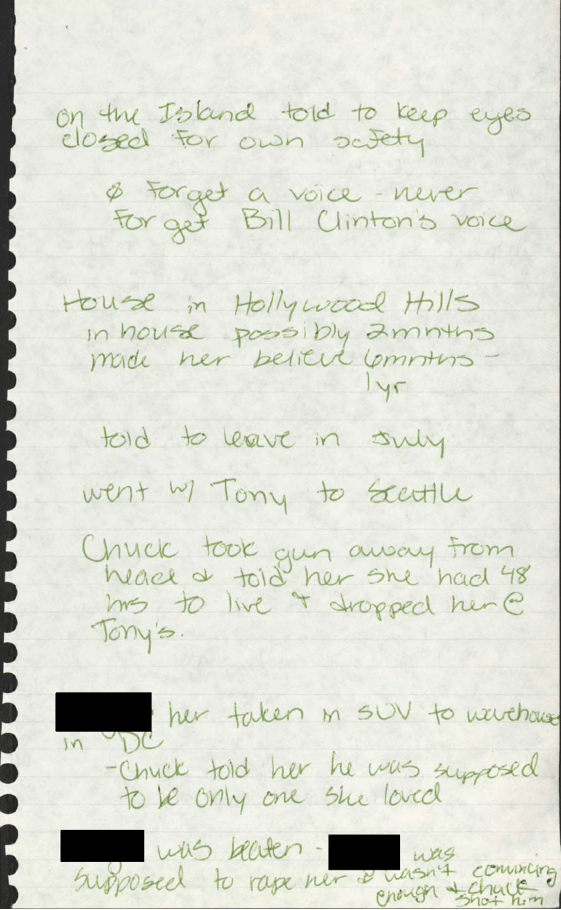 on the Island told to keep eyes
closed for own safety
Ø forget a voice - never
forget Bill Clinton's voice
House in Hollywood Hills
in house possibly 2mnths
made her believe 6mnths -
1yr
told to leave in July
went w/ Tony to Seattle
Chuck took gun away from
head & told her she had 48
hrs to live & dropped her @
Tony's.
her taken in SUV to warehouse
in DC
- Chuck told her he was supposed
to be only one she loved
was beaten - was
supposed to rape her & wasn't convincing
enough & Chuck
shot him